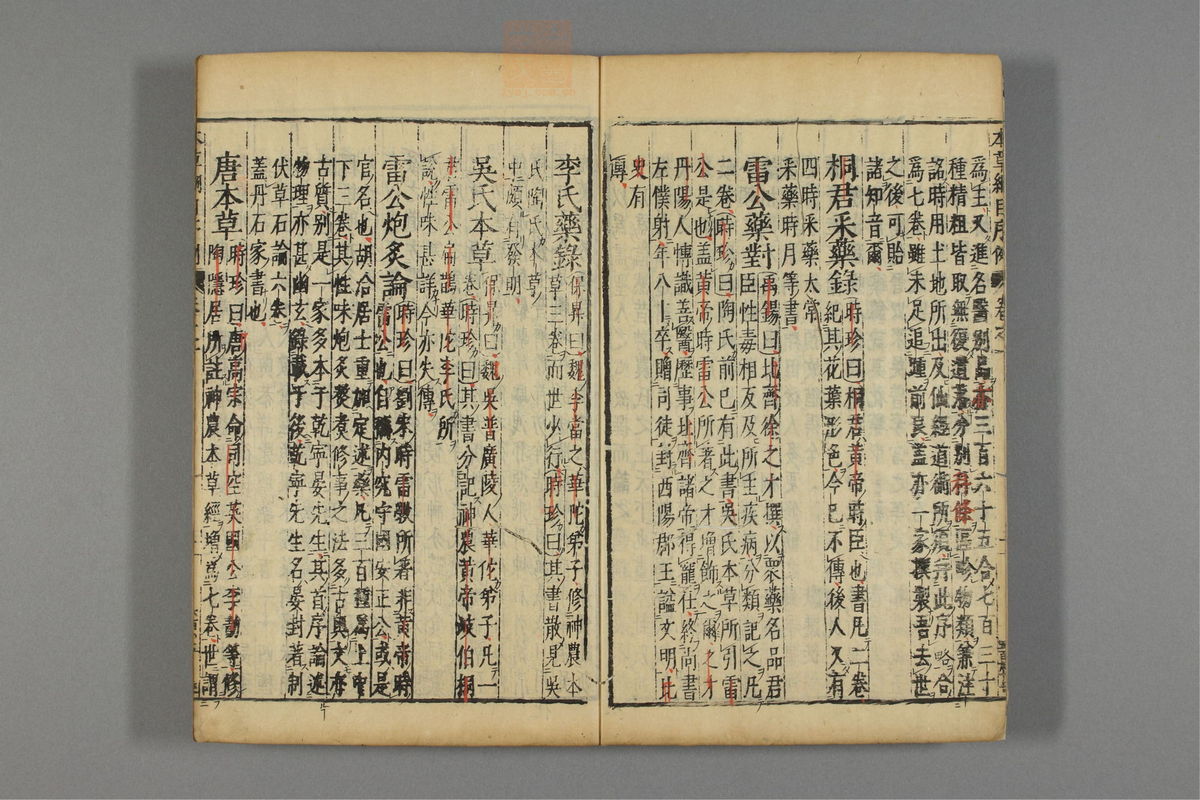 爲主又進名醫副品亦三百六十五合七百三十
種精粗皆取無復遺落分別科條區畛物類兼注
詺時用土地所出及仙經道術所須并此序略合
爲七卷雖未足追踵前良蓋亦一家撰製吾去世
之後可貽
諸知音爾
桐君采藥錄時珍曰桐君黃帝時臣也書凡二卷
紀其花葉形色今已不傳後人又有
四時采藥太常
采藥時月等書
雷公藥對禹錫曰北齊徐之才撰以衆藥名品君
臣性毒相反及所主疾病分類記之凡
二卷時珍曰陶氏前已有此書吳氏本草所引雷
公是也蓋黃帝時雷公所著之才增飾之爾之才
丹陽人博識善醫歷事北齊諸帝得寵仕終尚書
左僕射年八十卒贈司徒封西陽郡王謚文明北
史有
傳
李氏藥錄保昇曰魏李當之華陀弟子修神農本
草三卷而世少行時珍曰其書散見吳
氏陶氏本草
中頗有發明
吳氏本草保昇曰魏吳普廣陵人華佗弟子凡一
卷時珍曰其書分記神農黃帝岐伯桐
君雷公扁鵲華佗李氏所
說性味甚詳今亦失傳
雷公炮炙論時珍曰劉宋時雷斅所著非黃帝時
雷公也自稱內究守國安正公或是
官名也胡洽居士重加定述藥凡三百種爲上中
下三卷其性味炮炙熬煮修事之法多古奧文亦
古質別是一家多本于乾寧晏先生其首序論述
物理亦甚幽玄錄載于後乾寧先生名晏封著制
伏草石論六卷
蓋丹石家書也
唐本草時珍曰唐高宗命司空英國公李勣等修
陶隱居所註神農本草經增爲七卷世謂